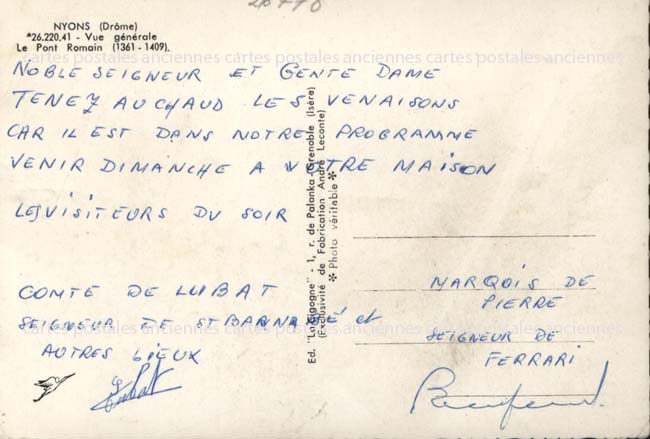 20770
NYONS (Drôme)
*26.220.41 - Vue générale
Le Pont Romain (1361 - 1409).
cartes postales anciennes cartes postales anciennes cartes postales anciennes
NOBLE SEIGNEUR ET GENTE DAME
TENEZ AU CHAUD LES VENAISONS
CAR IL EST DANS NOTRE PROGRAMME
VENIR DIMANCHE A VOTRE MAISON
LES VISITEURS DU SOIR
COMTE DE LUBAT
SEIGNEUR DE ST BARNABÉ et
AUTRES LIEUX
Lubat
Ed. "La Cigogne" - 1, r. de Palanka - Grenoble (Isère)
(Exclusivité de Fabrication André Leconte)
* Photo véritable *
MARQUIS DE
PIERRE
SEIGNEUR DE
FERRARI
cartes postales anciennes cartes postales anciennes cartes postales anciennes